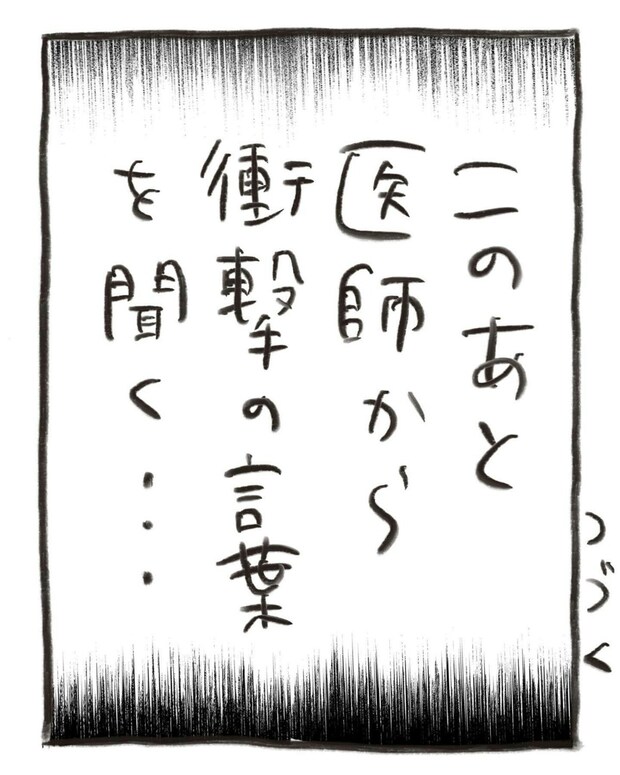 このあと
医師から
衝撃の言葉
を聞く…
つづく